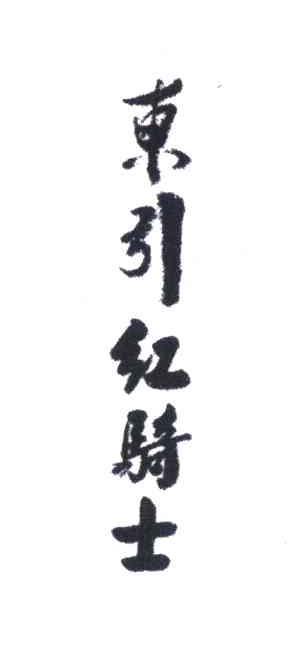 東引紅騎士